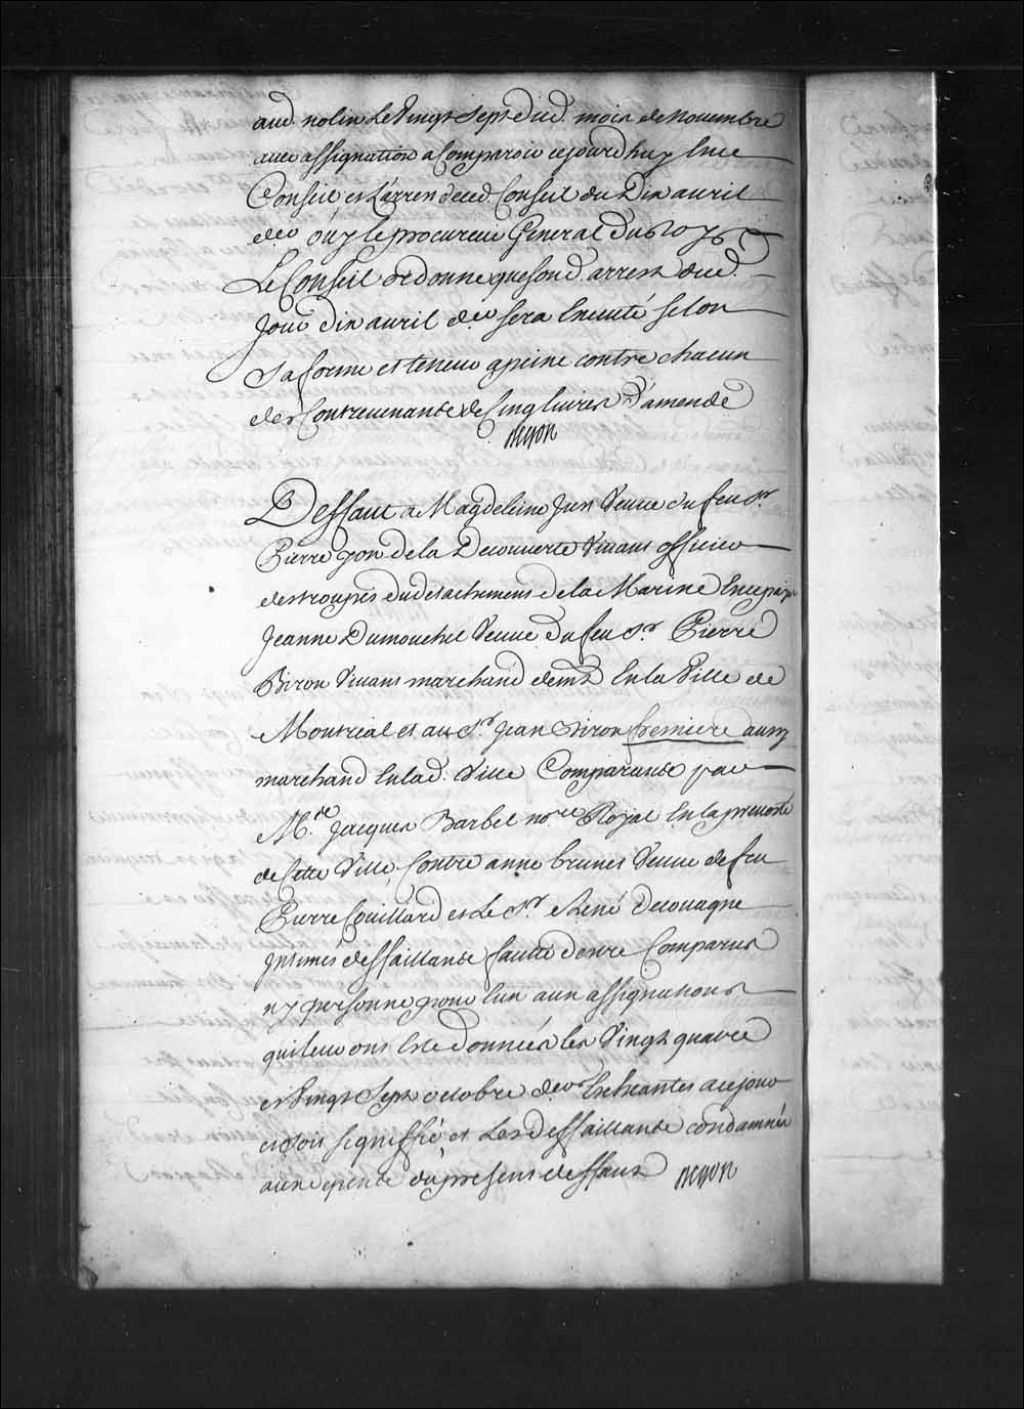 aud. nolin Le Vingt Sept dud. mois de Novembre
avec assignation a Comparoir cejourd'huy En ce
Conseil et L'arrest deced. Conseil du Dix auril
der. ouy le procureur General du Roy
Le Conseil ordonne que sond. arrest dud.
Jour dix auril der. sera Executé selon
sa forme et teneur a peine contre chacun
des Contreuenants de Cinq liures d'amende
Deffaut a Magdeleine Just Veuue du feu Sr.
Pierre you de la Decouuerte Viuant officier
des troupes du detachement de la Marine En ce païs
Jeanne Dumouchel Veuue du feu Sr. Pierre
Biron Viuant marchand demt. En la Ville de
Montreal et au Sr. Jean Biron freniere aussy
marchand En lad. Ville Comparants par
Me. Jacques Barbel nore. Royal En la preuosté
de Cette Ville, Contre anne brunet Veuue de feu
Pierre Couillard et Le Sr. René Decouagne
Intimés deffaillants faute d'estre Comparus
ny personne pour Eux aux assignations
qui leur ont Esté données les Vingt quatre
et Vingt Sept octobre der. Echeantes a ce jour
et soit signiffié et Les deffaillants condamnés
aux depens du present deffaut